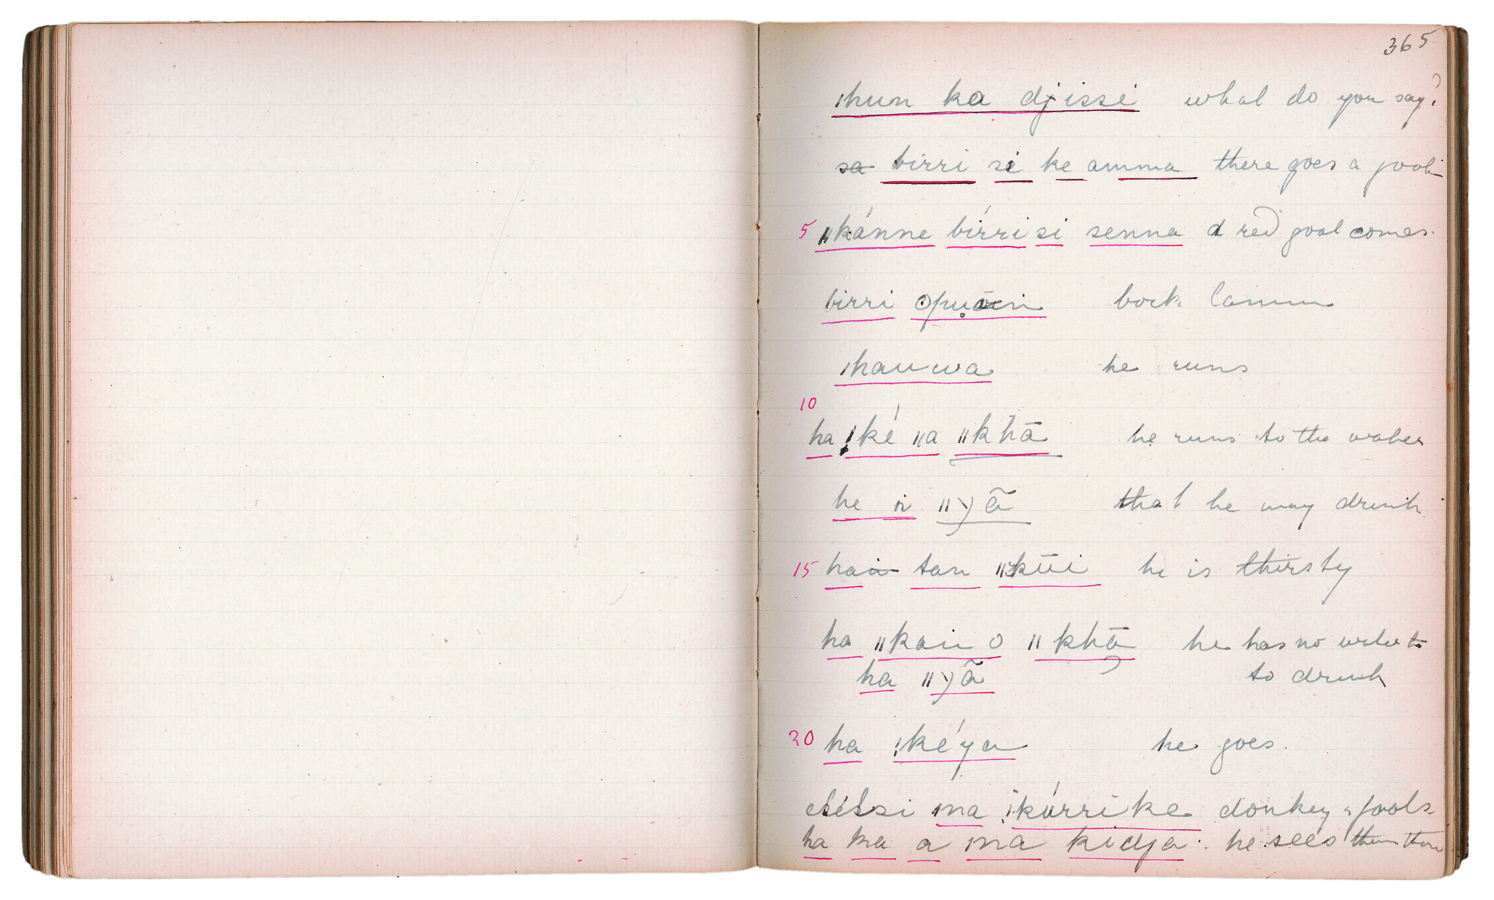 365
ǀhun ka djissi what do you say?
sa birri si ke amma there goes a goat
5 ǁkánne bírri si senna a red goat comes.
birri opu̥ain bock lamm
ǀhauwa he runs
10
ha ǃké ǁa ǁkhā he runs to the water
he n ǁyã that he may drink
15 ha tan ǁkūi he is thirsty
ha ǁkain o ǁkhā he has no water to
ha ǁyã to drink
20 ha ǃkéya he goes.
ma ǃkúrri ke donkey's foals
ha ka a ma kidja. he sees them there